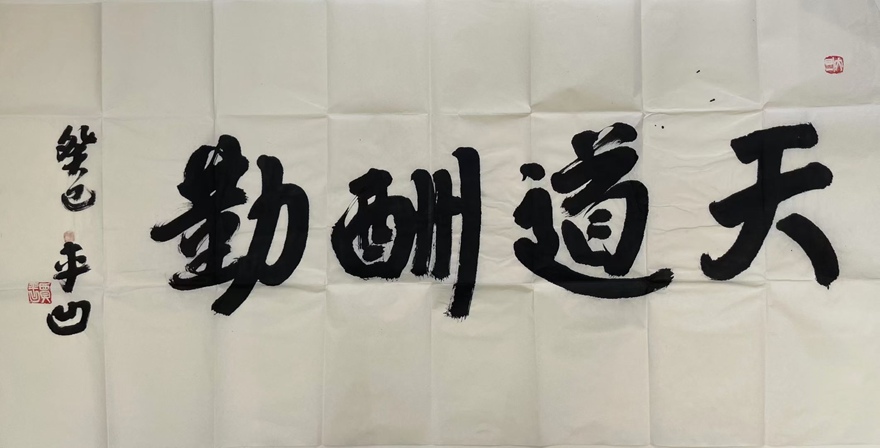 天道酬勤
癸巳 平凹